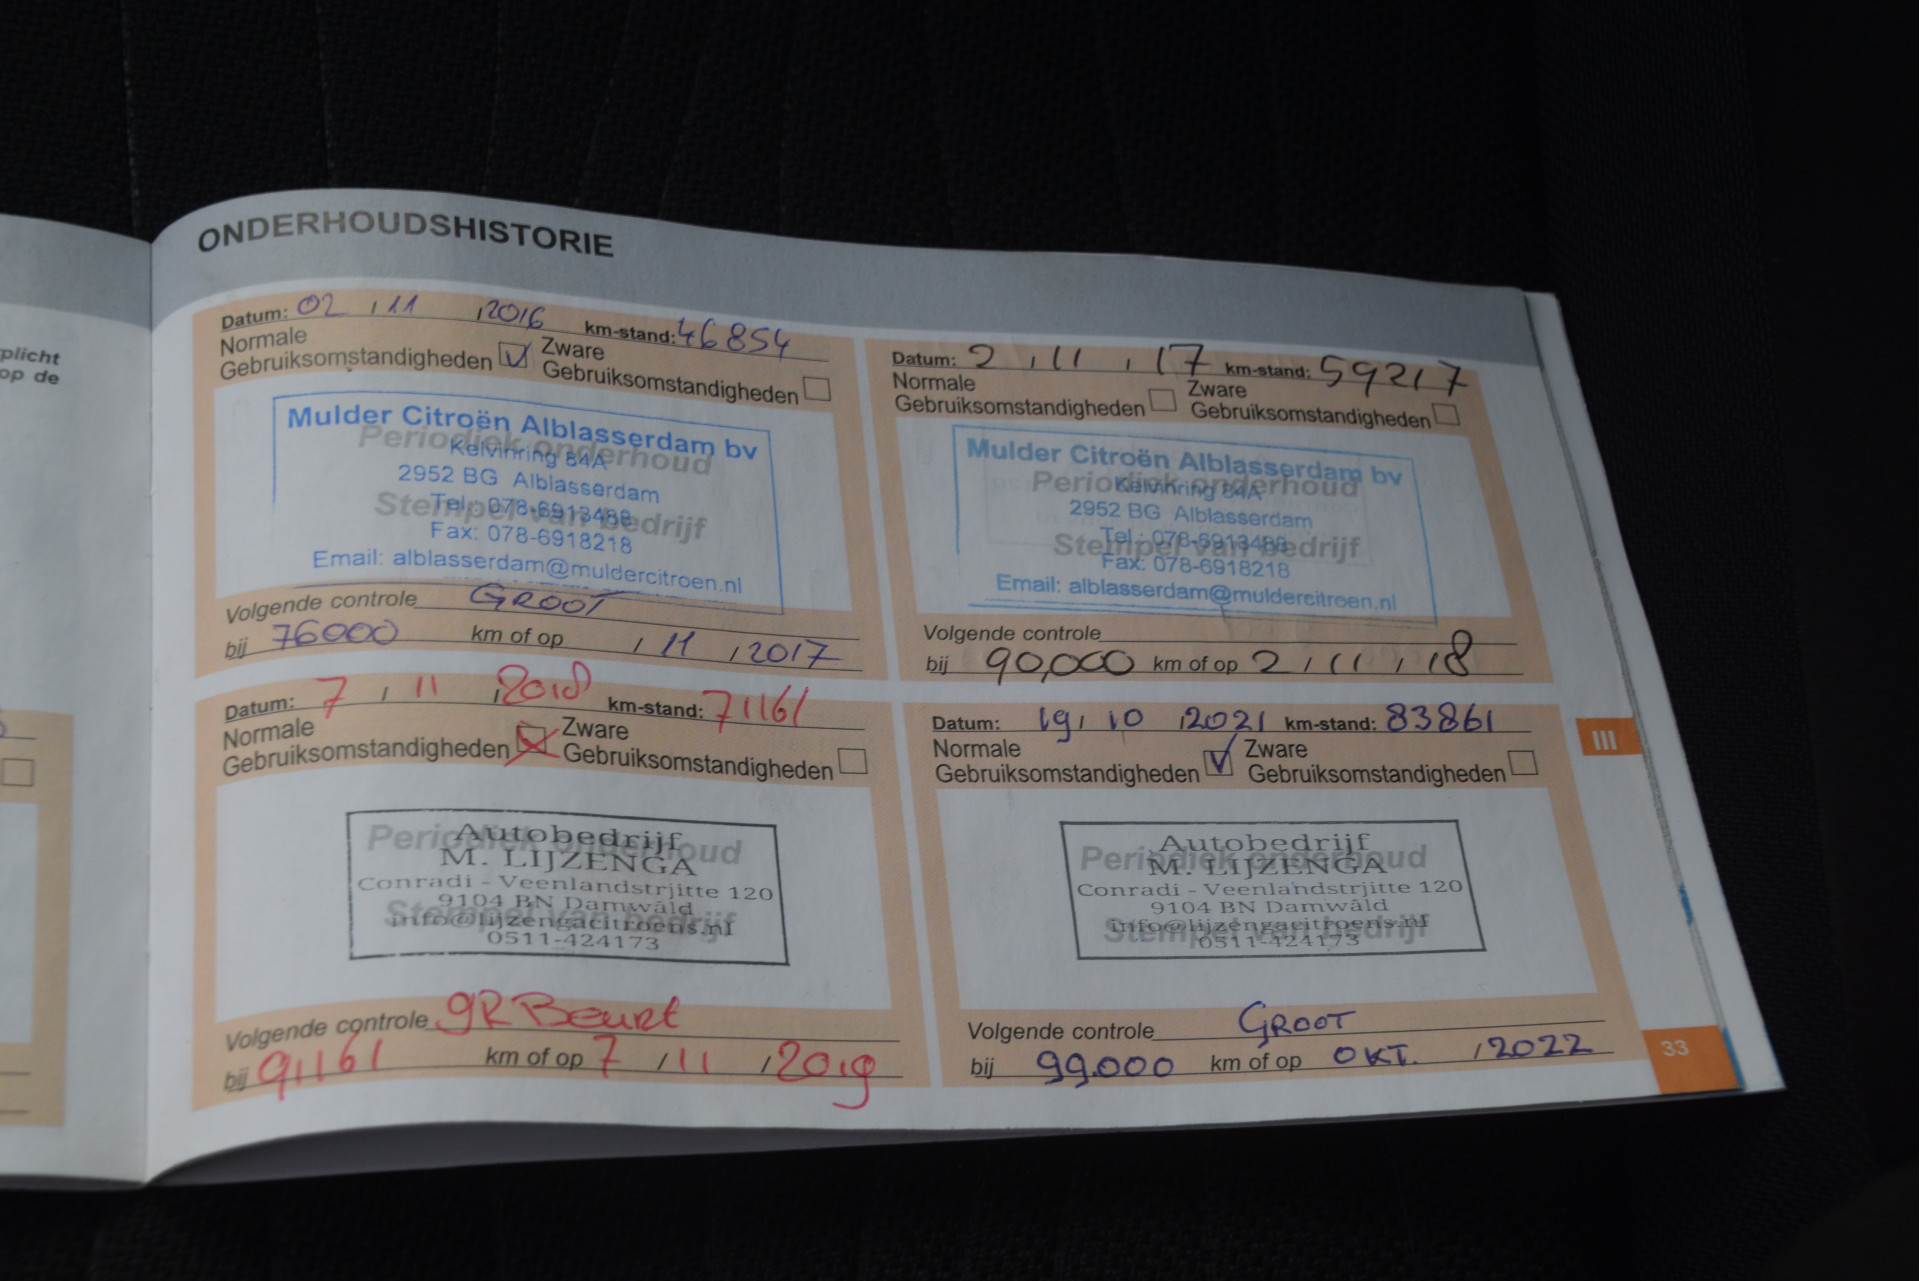 plicht
op de
ONDERHOUDSHISTORIE
Datum: 02 / 11 / 2016 km-stand: 46854
Normale Gebruiksomstandigheden Zware Gebruiksomstandigheden
Mulder Citroën Alblasserdam bv
Periodiek onderhoud
Kelvinring 84A
2952 BG Alblasserdam
Stempel van bedrijf
Tel.: 078-6913488
Fax: 078-6918218
Email: alblasserdam@muldercitroen.nl
Volgende controle GROOT
bij 76000 km of op / 11 / 2017
Datum: 2 / 11 / 17 km-stand: 59217
Normale Gebruiksomstandigheden Zware Gebruiksomstandigheden
Mulder Citroën Alblasserdam bv
Periodiek onderhoud
Kelvinring 84A
2952 BG Alblasserdam
Stempel van bedrijf
Tel.: 078-6913488
Fax: 078-6918218
Email: alblasserdam@muldercitroen.nl
Volgende controle
bij 90,000 km of op 2 / 11 / 18
Datum: 7 / 11 / 2018 km-stand: 71161
Normale Gebruiksomstandigheden Zware Gebruiksomstandigheden
Autobedrijf
Periodiek onderhoud
M. LIJZENGA
Conradi - Veenlandstrjitte 120
9104 BN Damwâld
Stempel van bedrijf
info@lijzengacitroens.nl
0511-424173
Volgende controle gR Beurt
bij 91161 km of op 7 / 11 / 2019
Datum: 19 / 10 / 2021 km-stand: 83861
Normale Gebruiksomstandigheden Zware Gebruiksomstandigheden
Autobedrijf
Periodiek onderhoud
M. LIJZENGA
Conradi - Veenlandstrjitte 120
9104 BN Damwâld
Stempel van bedrijf
info@lijzengacitroens.nl
0511-424173
Volgende controle GROOT
bij 99.000 km of op OKT. / 2022
III
33